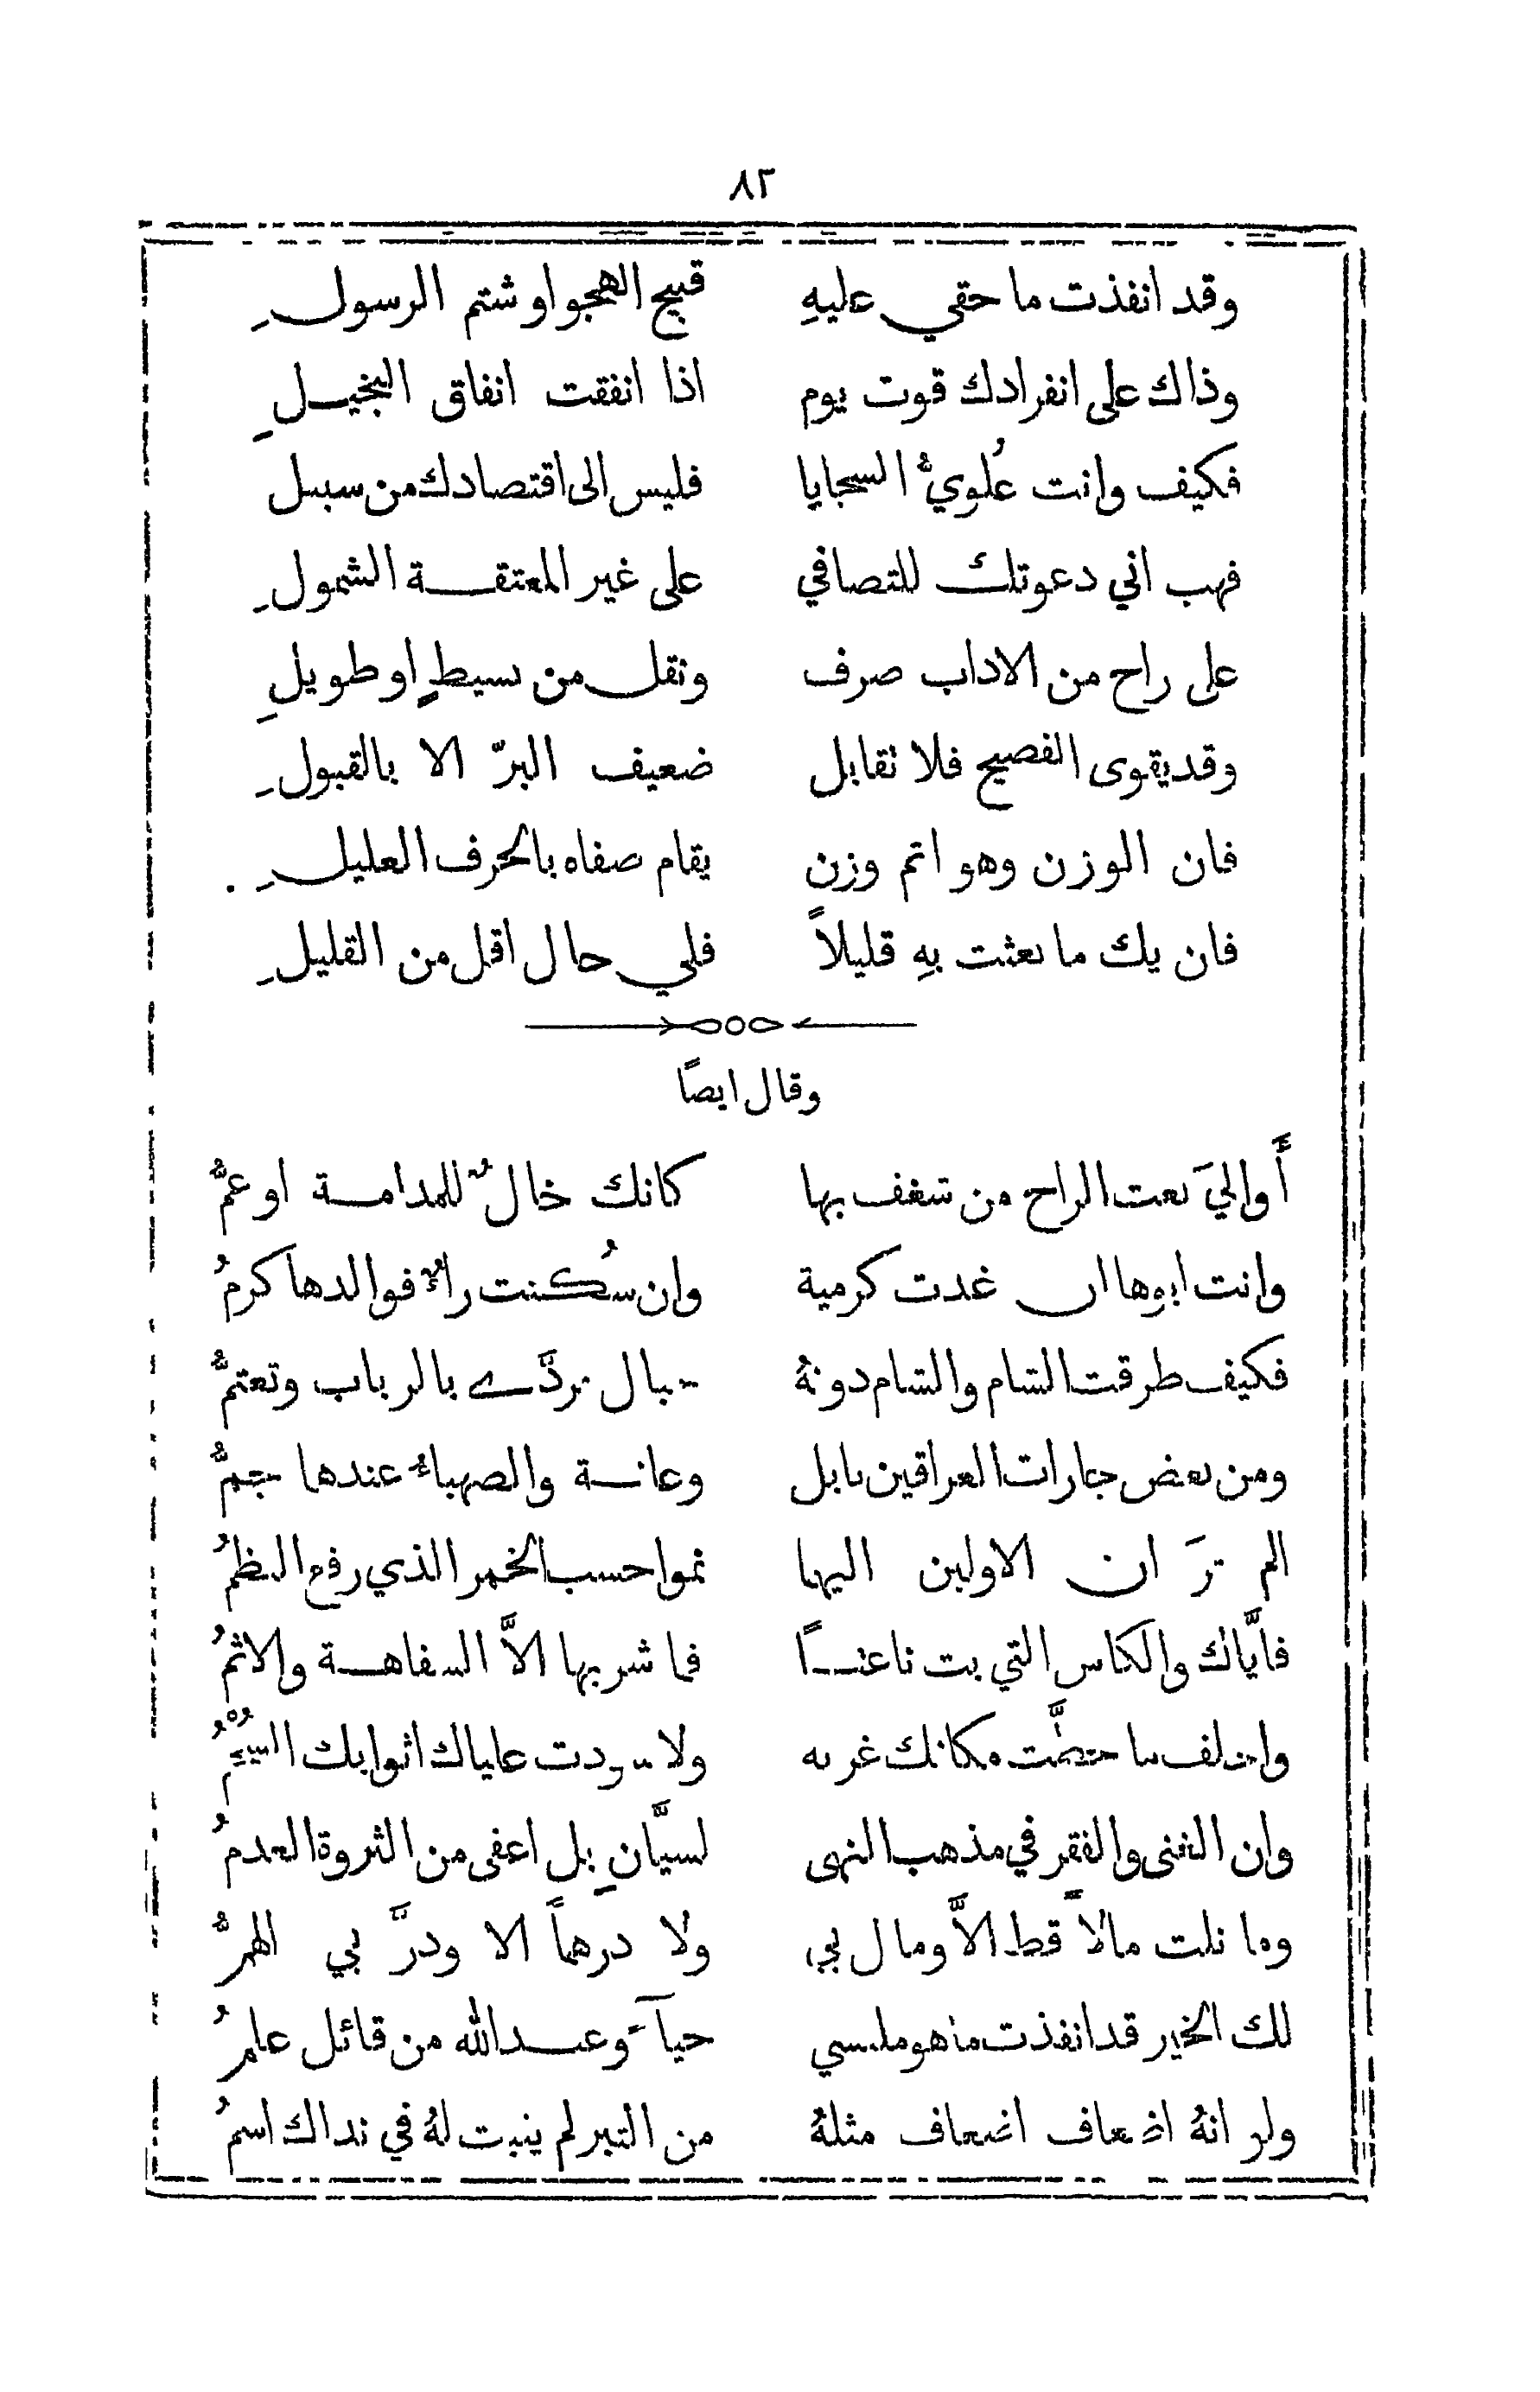 ٨٢
وقد انفذت ما حقي عليهِ قبيح الهجو او شتم الرسولِ
وذاك على انفرادك قوت يوم اذا انفقت انفاق البخيلِ
فكيف وانت عُلويُّ السجايا فليس الى اقتصادك من سبيل
فهب اني دعوتك للتصافي على غير المعتقة الشمولِ
على راح من الاداب صرف ونقل من بسيطٍ او طويلِ
وقد يقوى الفصيح فلا تقابل ضعيف البرّ الا بالقبولِ
فان الوزن وهو اتم وزن يقام صفاه بالحرف العليلِ
فان يك ما بعثت بهِ قليلاً فلي حال اقل من القليلِ
وقال ايضاً
أَوالليَ نعت الراح من شغف بها كانك خالٌ للمدامة او عمُّ
وانت ابوها ان غدت كرمية وان سُكنت راءٌ فوالدها كرمُ
فكيف طرقت الشام والشام دونهُ جبال تردَّے بالرباب وتعتمُّ
ومن بعض جارات العراقين بابل وعانة والصهباءُ عندها جمُّ
الم ترَ ان الاولين اليهما نموا حسب الخمر الذي رفع النظمُ
فايَّاك والكاس التي بت ناعتاً فما شربها الاَّ السفاهة والاثمُ
مكانك غربه ولا سودت عليك اثوابك السُحْمُ
وان الغنى والفقر في مذهب النهى لسيَّانِ بل اعفى من الثروة العدمُ
وما نلت مالاً قط الاَّ ومال بي ولا درهماً الا ودرَّ بي الهمُّ
لك الخير قد انفذت ما هو ملبسي حياءً وعند الله من قائل علمُ
ولو انهُ اضعاف اضعاف مثلهُ من التبر لم ينبت لهُ في نداك اسمُ